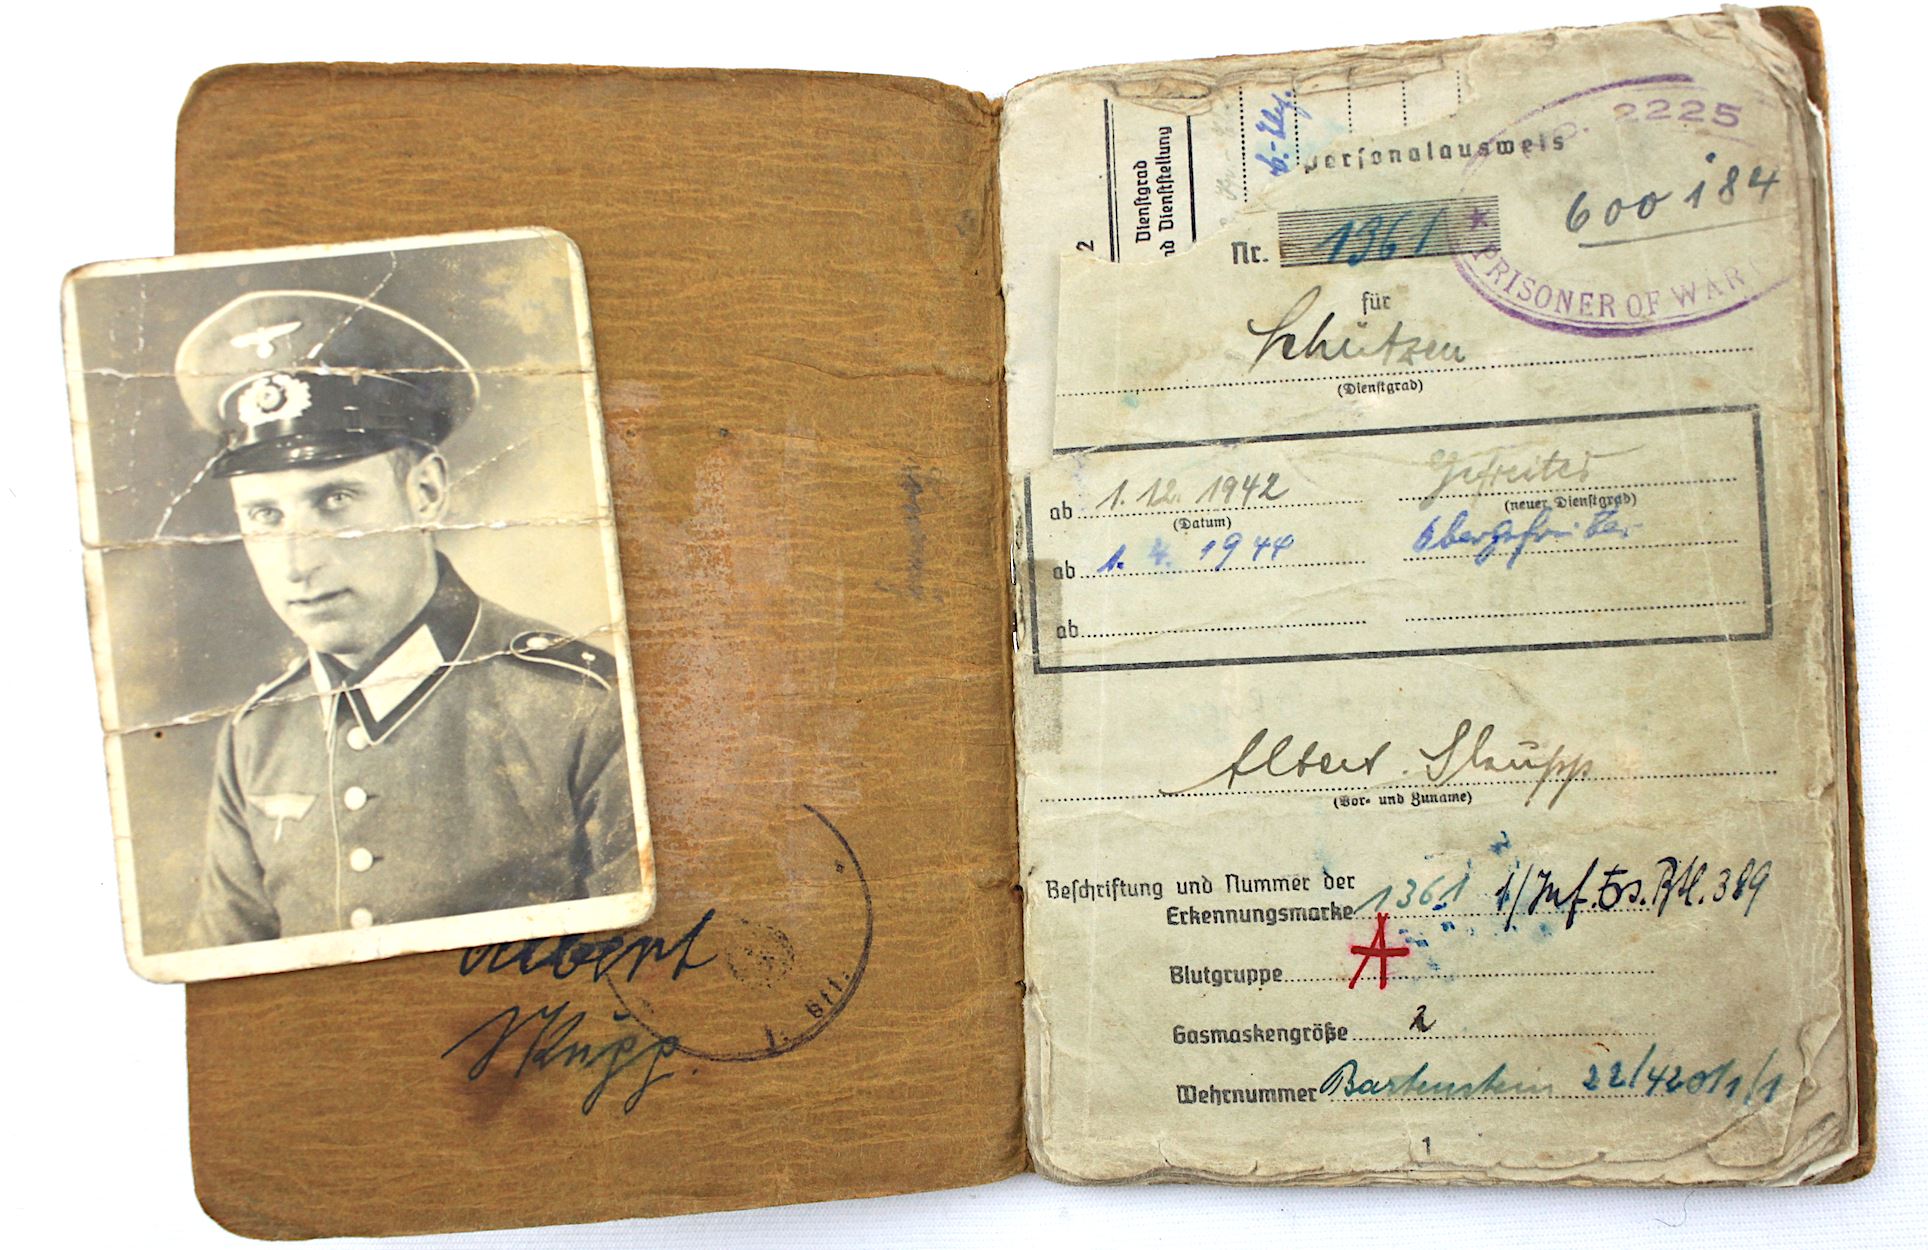 Albert
2
Dienstgrad
nd Dienststellung
Personalausweis
2225
600184
Nr. 1361
PRISONER OF WAR
für
Schützen
(Dienstgrad)
ab 1. 12. 1942 Gefreiter
(Datum) (neuer Dienstgrad)
ab 1. 4. 1944 Obergefreiter
ab
Albert
(Vor- und Zuname)
Beschriftung und Nummer der
Erkennungsmarke 1361 1/Inf. Ers. Btl. 389
Blutgruppe A
Gasmaskengröße 2
Wehrnummer Bartenstein 22/42
1